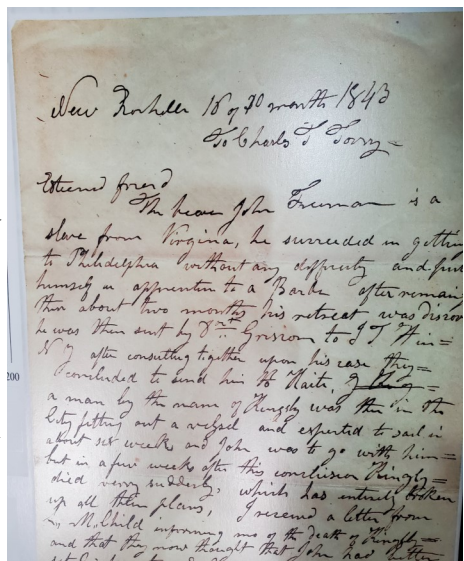 New Rochelle 16 of 10 month 1843
To Charles T Torry =
Esteemed friend
The bearer John Freeman is a
slave from Virginia, he surceeded in getting
to Philadelphia without any difficuty and put
himself an apprentice to a Barber after remain
there about two months his retreat was discov
he was then sent by Drs Grissom to J T Hin=
N Y after consulting together upon his case they=
concluded to send him to Haita,
a man by the name of Kingsly was then in the
City fitting out a vessel and expected to sail in
about six weeks and John was to go with him=
but in a few weeks after this conclusion Kingsly=
died verry suddenly, which has entirely broken
up all their plans, I received a letter from
M. Child informing me of the death of Kingsly=
and that they now thought that John had better
200